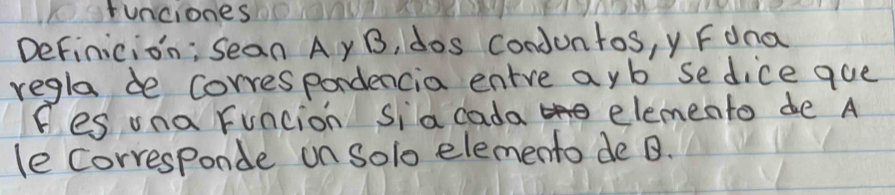 Funciones
Definición: Sean A y B, dos conjuntos, y F una
regla de correspondencia entre a y b se dice que
F es una Función si a cada elemento de A
le corresponde un solo elemento de B.